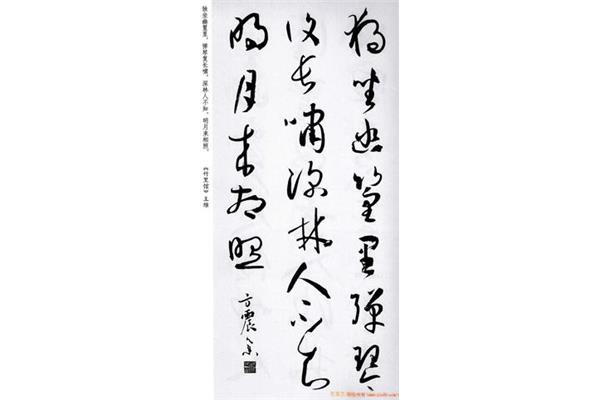 独坐幽篁里弹琴
复长啸深林人不知
明月来相照
方震
独坐幽篁里，弹琴复长啸。深林人不知，明月来相照。
《竹里馆》王维